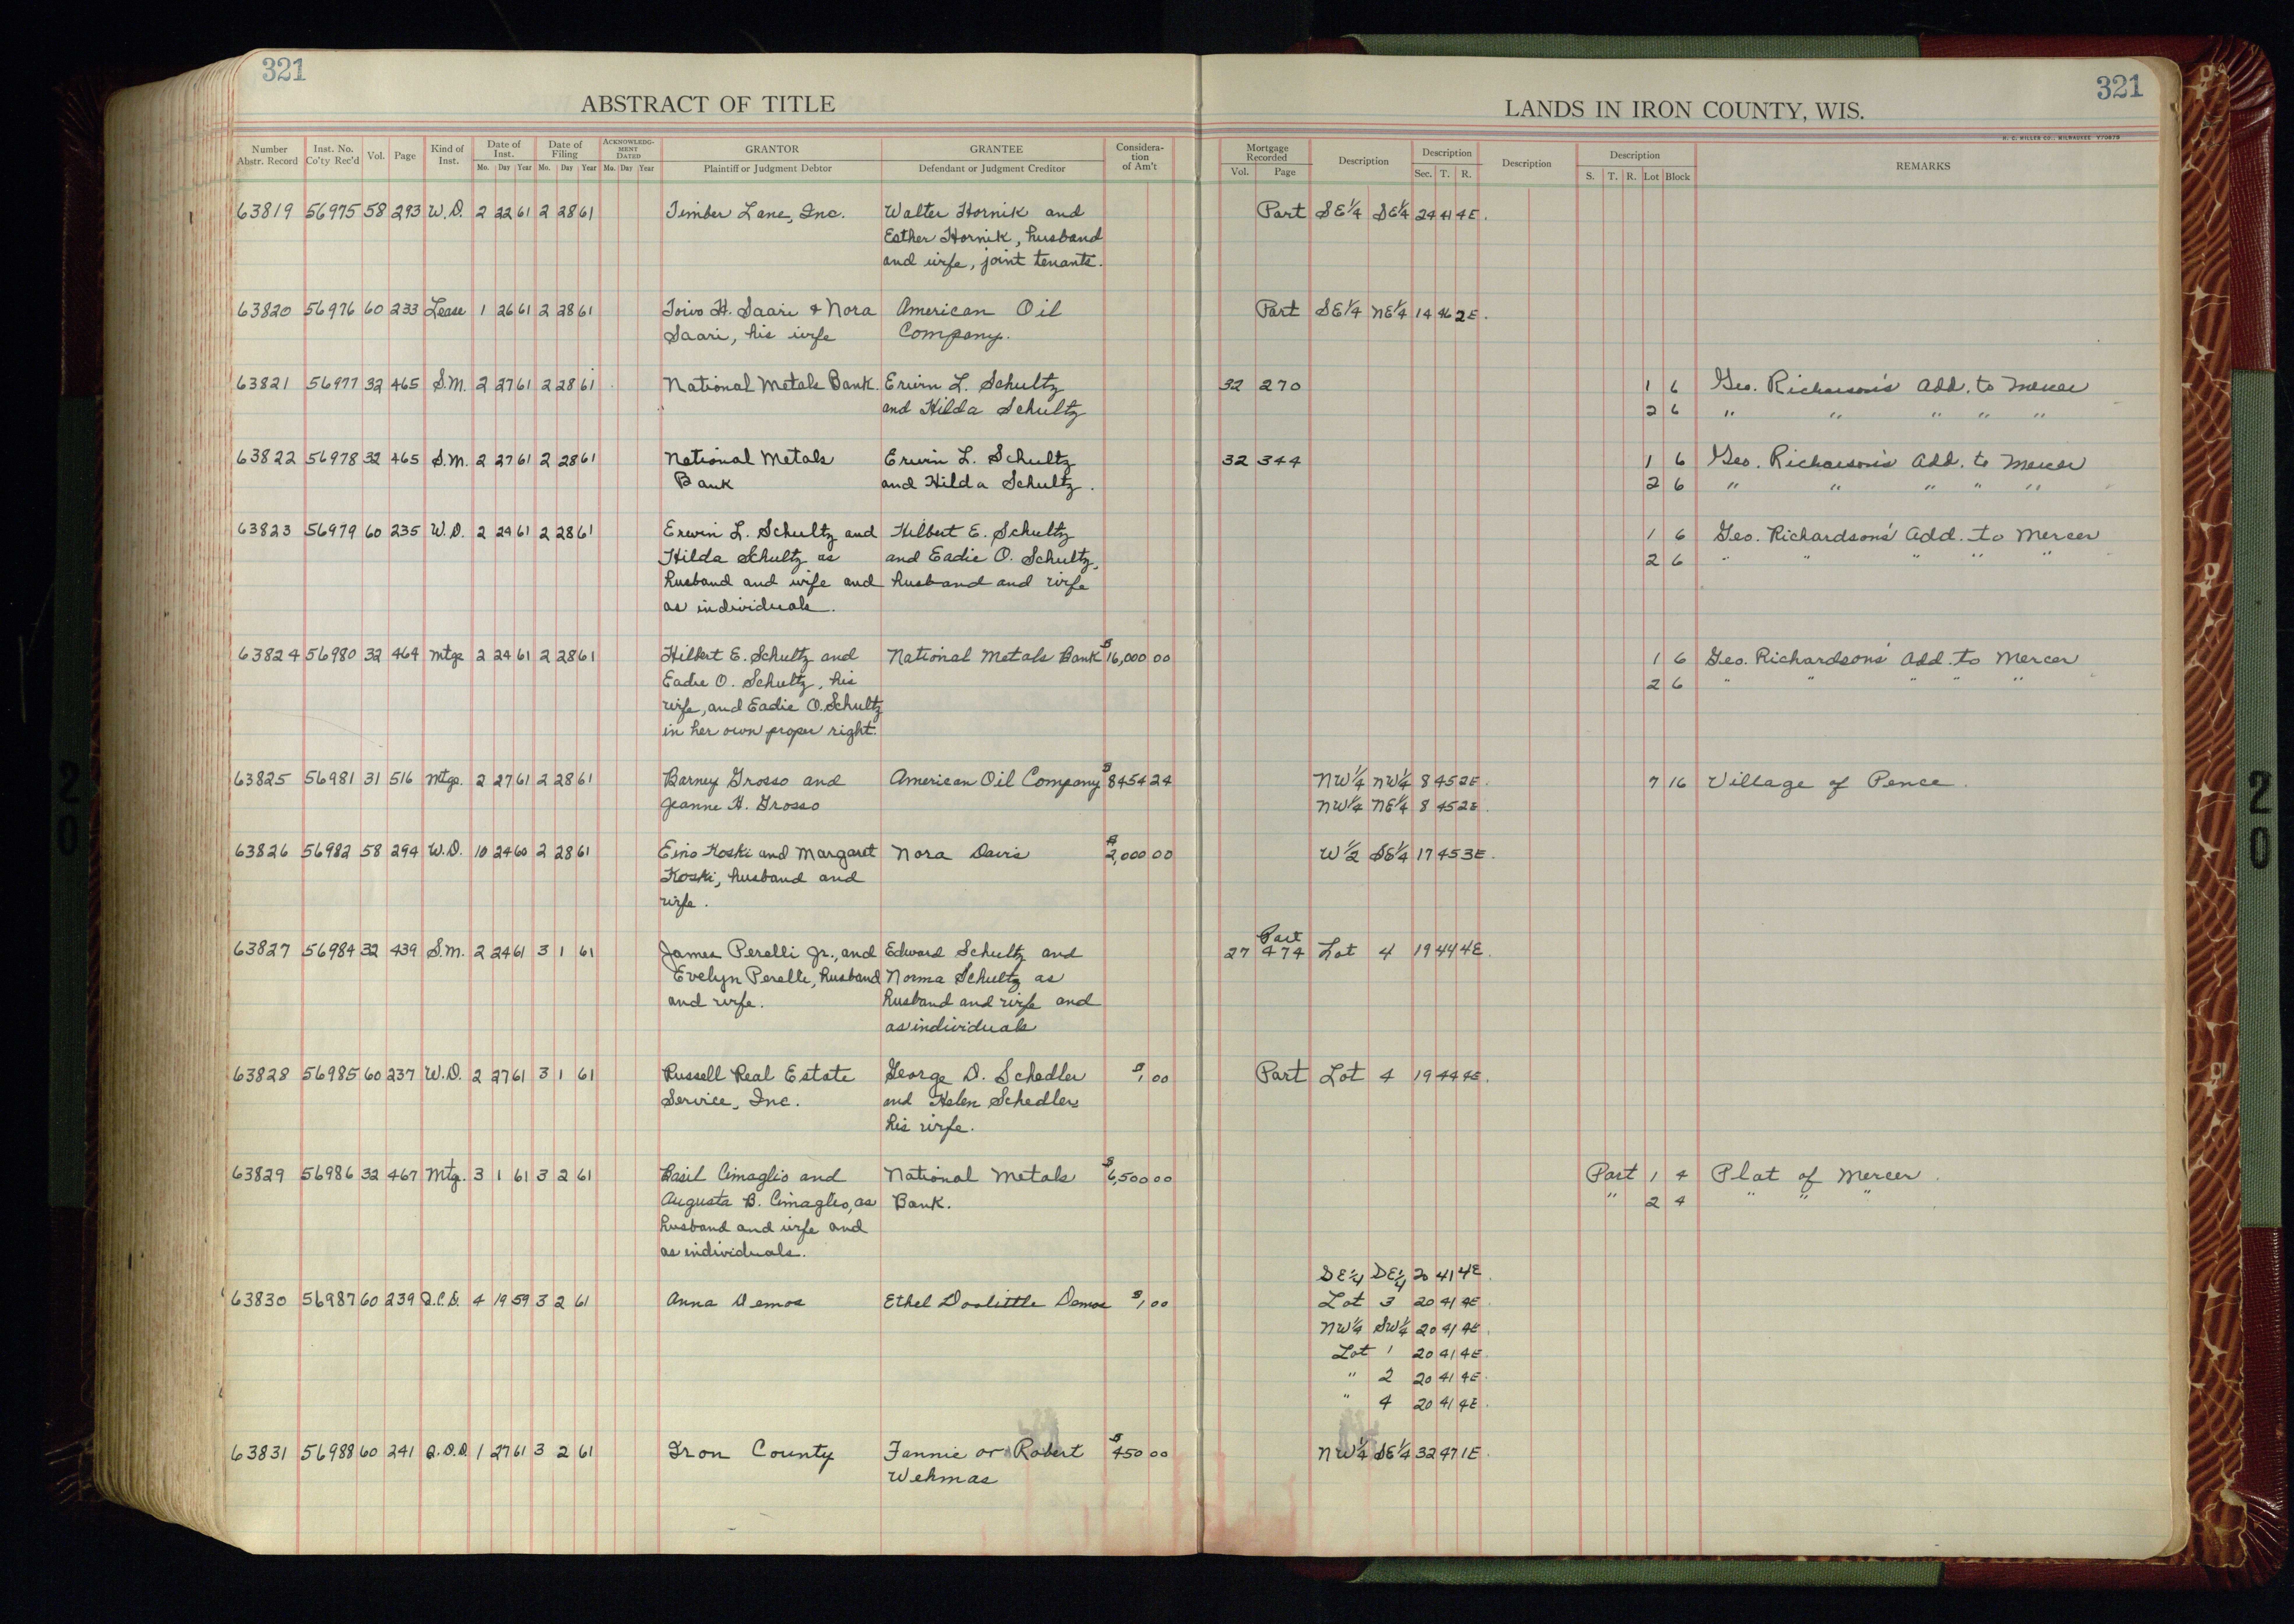 321
321
ABSTRACT OF TITLE
LANDS IN IRON COUNTY, WIS.
H. C. MILLER CO., MILWAUKEE V70679
Number Abstr. Record Inst. No. Co'ty Rec'd Vol. Page Kind of Inst. Date of Inst. Mo. Day Year Date of Filing Mo. Day Year ACKNOWLEDGMENT DATED Mo. Day Year GRANTOR Plaintiff or Judgment Debtor GRANTEE Defendant or Judgment Creditor Consideration of Am't Mortgage Recorded Vol. Page Description Description Sec. T. R. Description Description S. T. R. Lot Block REMARKS
63819 56975 58 293 W.D. 2 22 61 2 28 61 Timber Lane, Inc. Walter Hornik and Part SE1/4 SE1/4 24 41 4E.
Esther Hornik, husband
and wife, joint tenants.
63820 56976 60 233 Lease 1 26 61 2 28 61 Toivo H. Saari & Nora American Oil Part SE1/4 NE1/4 14 46 2E.
Saari, his wife Company.
63821 56977 32 465 S.M. 2 27 61 2 28 61 National Metals Bank. Erwin L. Schultz 32 270 1 6 Geo. Richarson's Add. to Mercer
and Hilda Schultz 2 6 " " " " "
63822 56978 32 465 S.M. 2 27 61 2 28 61 National Metals Erwin L. Schultz 32 344 1 6 Geo. Richarson's Add. to Mercer
Bank and Hilda Schultz. 2 6 " " " " "
63823 56979 60 235 W.D. 2 24 61 2 28 61 Erwin L. Schultz and Hilbert E. Schultz 1 6 Geo. Richardson's Add. to Mercer
Hilda Schultz as and Eadie O. Schultz, 2 6 " " " " "
husband and wife and husband and wife
as individuals.
63824 56980 32 464 Mtge 2 24 61 2 28 61 Hilbert E. Schultz and National Metals Bank $16,000 00 1 6 Geo. Richardson's Add. to Mercer
Eadie O. Schultz, his 2 6 " " " " "
wife, and Eadie O. Schultz
in her own proper right.
63825 56981 31 516 Mtge. 2 27 61 2 28 61 Barney Grosso and American Oil Company $8454 24 NW1/4 NW1/4 8 45 2E. 7 16 Village of Pence.
Jeanne H. Grosso NW1/4 NE1/4 8 45 2E.
63826 56982 58 294 W.D. 10 24 60 2 28 61 Eino Koski and Margaret Nora Davis $2,000 00 W1/2 SE1/4 17 45 3E.
Koski, husband and
wife.
63827 56984 32 439 S.M. 2 24 61 3 1 61 James Perelli Jr., and Edward Schultz and 27 474 Part Lot 4 19 44 4E.
Evelyn Perelli, husband Norma Schultz as
and wife. husband and wife and
as individuals
63828 56985 60 237 W.D. 2 27 61 3 1 61 Russell Real Estate George D. Schedler $1 00 Part Lot 4 19 44 4E.
Service, Inc. and Helen Schedler,
his wife.
63829 56986 32 467 Mtg. 3 1 61 3 2 61 Basil Cimaglio and National Metals $6,500 00 Part 1 4 Plat of Mercer.
Augusta B. Cimaglio, as Bank. " 2 4 " " "
husband and wife and
as individuals.
SE1/4 SE1/4 20 41 4E.
63830 56987 60 239 Q.C.D. 4 19 59 3 2 61 Anna Demos Ethel Doolittle Demos $1 00 Lot 3 20 41 4E.
NW1/4 SW1/4 20 41 4E.
Lot 1 20 41 4E.
" 2 20 41 4E.
" 4 20 41 4E.
63831 56988 60 241 Q.C.D. 1 27 61 3 2 61 Iron County Fannie or Robert $450 00 NW1/4 SE1/4 32 47 1E.
Wehmas
20
20